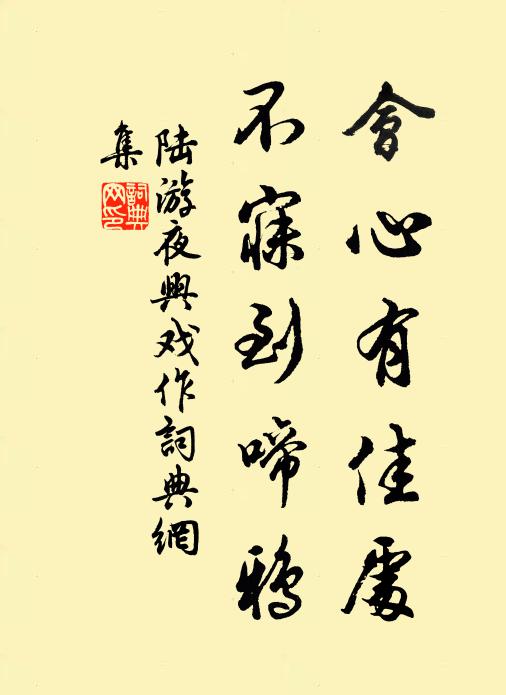 會心有佳處
不寐到啼鴉
陆游夜興戏作詞典網
集
詞典網印